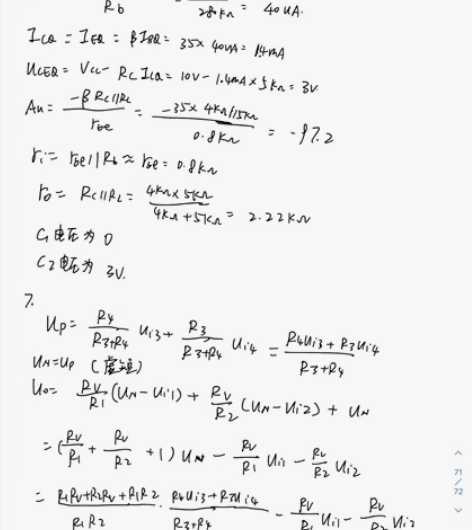 Rb 280kΩ = 40uA.
ICQ = IEQ = βIBQ = 35× 40uA = 1.4mA
UCEQ = Vcc - RC ICQ = 10V - 1.4mA×5kΩ = 3V
Au = -βRC//RL / rbe = -35× 4kΩ//5kΩ / 0.8kΩ = -97.2
ri = rbe//Rb ≈ rbe = 0.8kΩ
ro = RC//RL = 4kΩ×5kΩ / 4kΩ+5kΩ = 2.22kΩ
C1电压为 0
C2电压为 3V.
7.
Up = R4 / R3+R4 Ui3 + R3 / R3+R4 Ui4 = R4Ui3 + R3Ui4 / R3+R4
UN=UP (虚短)
Uo = RV / R1 (UN - Ui1) + RV / R2 (UN - Ui2) + UN
= (RV / R1 + RV / R2 + 1) UN - RV / R1 Ui1 - RV / R2 Ui2
= R1RV+R2RV+R1R2 / R1R2 · R4Ui3+R3Ui4 / R3+R4 - RV / R1 Ui1 - RV / R2 Ui2
71
72